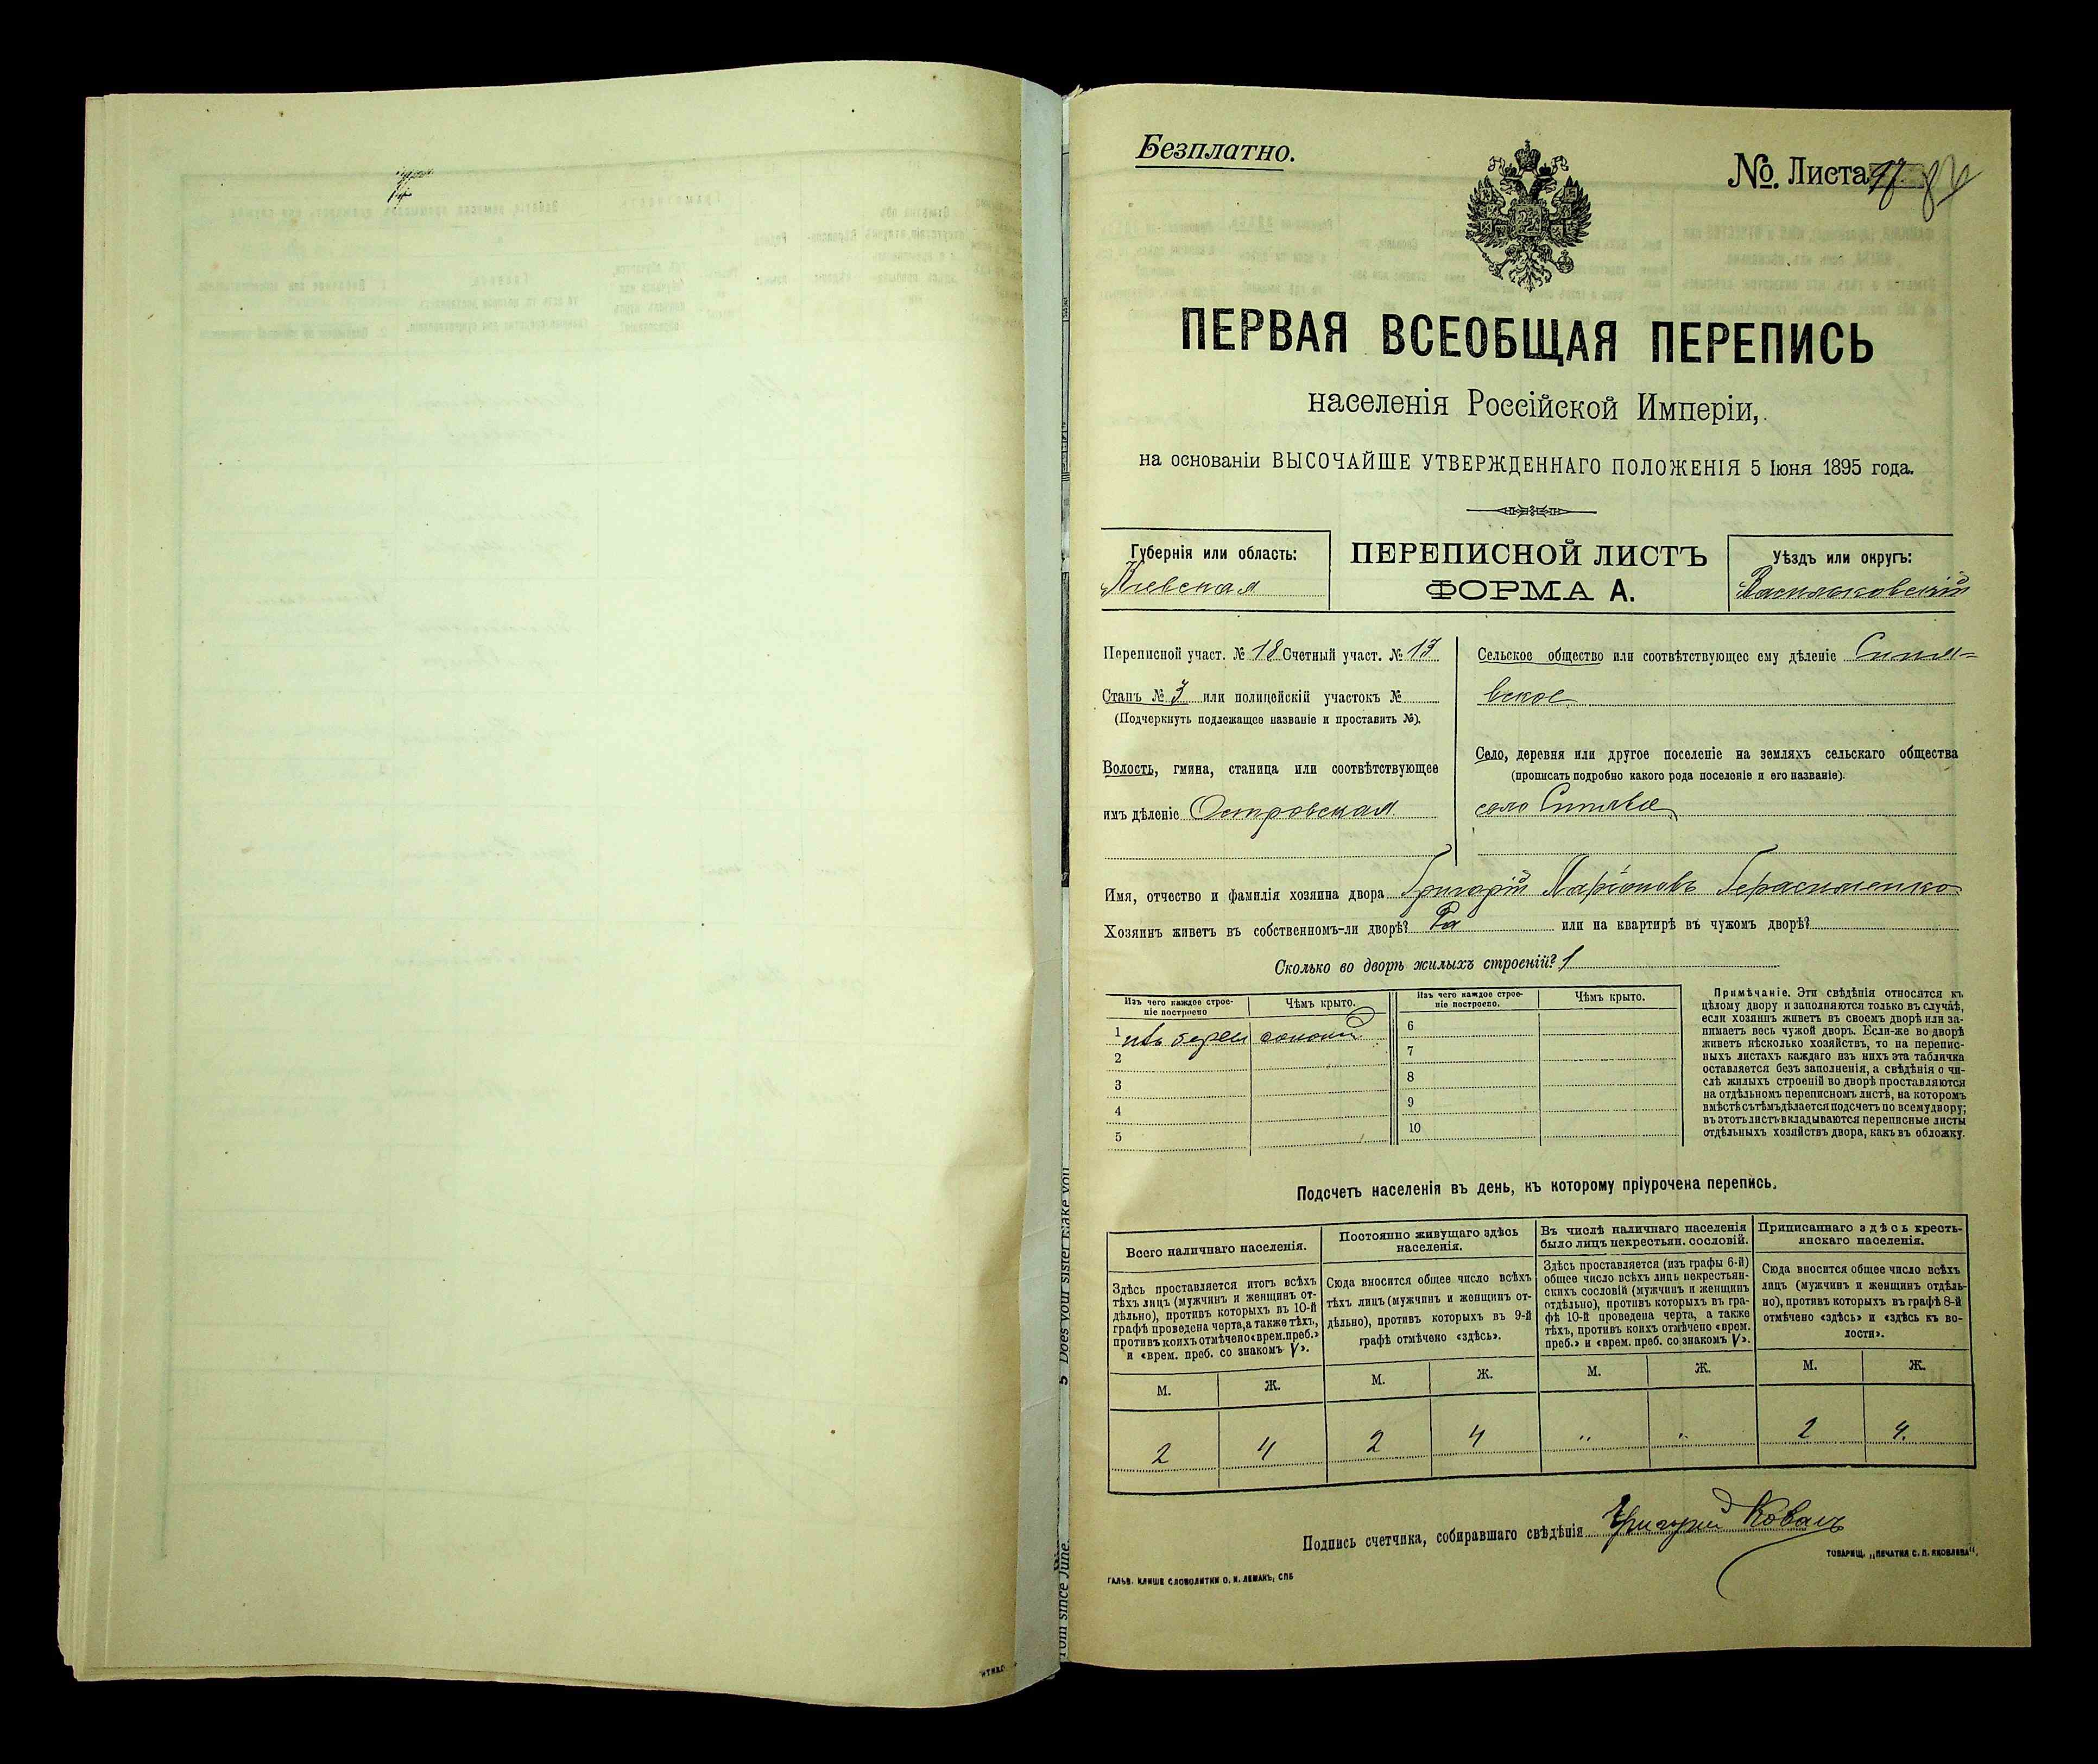 Безплатно.
№. Листа 97
ПЕРВАЯ ВСЕОБЩАЯ ПЕРЕПИСЬ
населенія Россійской Имперіи,
на основаніи ВЫСОЧАЙШЕ УТВЕРЖДЕННАГО ПОЛОЖЕНІЯ 5 Іюня 1895 года.
Губернія или область:
Кіевская
ПЕРЕПИСНОЙ ЛИСТЪ
ФОРМА А.
Уѣздъ или округъ:
Васильковскій
Переписной участ. № 18 Счетный участ. № 13
Станъ № 3 или полицейскій участокъ №
(Подчеркнуть подлежащее названіе и проставить №).
Волость, гмина, станица или соотвѣтствующее
имъ дѣленіе Островская
Сельское общество или соотвѣтствующее ему дѣленіе Синя-
вское
Село, деревня или другое поселеніе на земляхъ сельскаго общества
(прописать подробно какого рода поселеніе и его названіе).
село Синява
Имя, отчество и фамилія хозяина двора Григорій Ларіоновъ Герасименко
Хозяинъ живетъ въ собственномъ-ли дворѣ? Да или на квартирѣ въ чужомъ дворѣ?
Сколько во дворѣ жилыхъ строеній? 1
Изъ чего каждое строе-
ніе построено
Чѣмъ крыто.
Изъ чего каждое строе-
ніе построено.
Чѣмъ крыто.
1 изъ дерева соломой
2
3
4
5
6
7
8
9
10
Примѣчаніе. Эти свѣдѣнія относятся къ
цѣлому двору и заполняются только въ случаѣ,
если хозяинъ живетъ въ своемъ дворѣ или за-
нимаетъ весь чужой дворъ. Если-же во дворѣ
живетъ нѣсколько хозяйствъ, то на перепис-
ныхъ листахъ каждаго изъ нихъ эта табличка
оставляется безъ заполненія, а свѣдѣнія о чи-
слѣ жилыхъ строеній во дворѣ проставляются
на отдѣльномъ переписномъ листѣ, на которомъ
вмѣстѣ съ тѣмъ дѣлается подсчетъ по всему двору;
въ этотъ листъ вкладываются переписные листы
отдѣльныхъ хозяйствъ двора, какъ въ обложку.
Подсчетъ населенія въ день, къ которому пріурочена перепись.
Всего наличнаго населенія.
Постоянно живущаго здѣсь
населенія.
Въ числѣ наличнаго населенія
было лицъ некрестьян. сословій.
Приписаннаго здѣсь кресть-
янскаго населенія.
Здѣсь проставляется итогъ всѣхъ
тѣхъ лицъ (мужчинъ и женщинъ от-
дѣльно), противъ которыхъ въ 10-й
графѣ проведена черта, а также тѣхъ,
противъ коихъ отмѣчено «врем. преб.»
и «врем. преб. со знакомъ V».
Сюда вносится общее число всѣхъ
тѣхъ лицъ (мужчинъ и женщинъ от-
дѣльно), противъ которыхъ въ 9-й
графѣ отмѣчено «здѣсь».
Здѣсь проставляется (изъ графы 6-й)
общее число всѣхъ лицъ некрестьян-
скихъ сословій (мужчинъ и женщинъ
отдѣльно), противъ которыхъ въ гра-
фѣ 10-й проведена черта, а также
тѣхъ, противъ коихъ отмѣчено «врем.
преб.» и «врем. преб. со знакомъ V».
Сюда вносится общее число всѣхъ
лицъ (мужчинъ и женщинъ отдѣль-
но), противъ которыхъ въ графѣ 8-й
отмѣчено «здѣсь» и «здѣсь къ во-
лости».
М. Ж. М. Ж. М. Ж. М. Ж.
2 4 2 4 " " 2 4.
Подпись счетчика, собиравшаго свѣдѣнія Григорій Коваль
ГАЛЬВ. КЛИШЕ СЛОВОЛИТНИ О. И. ЛЕМАНЪ, СПБ
ТОВАРИЩ. „ПЕЧАТНЯ С. П. ЯКОВЛЕВА".
5 Does your sister make you
from since June.